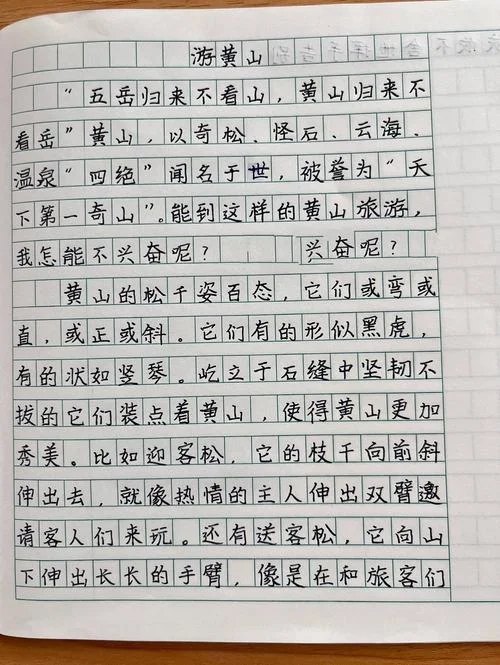 游黄山
“五岳归来不看山，黄山归来不
看岳”黄山，以奇松、怪石、云海、
温泉“四绝”闻名于世，被誉为“天
下第一奇山”。能到这样的黄山旅游，
我怎能不兴奋呢？ 兴奋呢？
黄山的松千姿百态，它们或弯或
直，或正或斜。它们有的形似黑虎，
有的状如竖琴。屹立于石缝中坚韧不
拔的它们装点着黄山，使得黄山更加
秀美。比如迎客松，它的枝干向前斜
伸出去，就像热情的主人伸出双臂邀
请客人们来玩。还有送客松，它向山
下伸出长长的手臂，像是在和旅客们